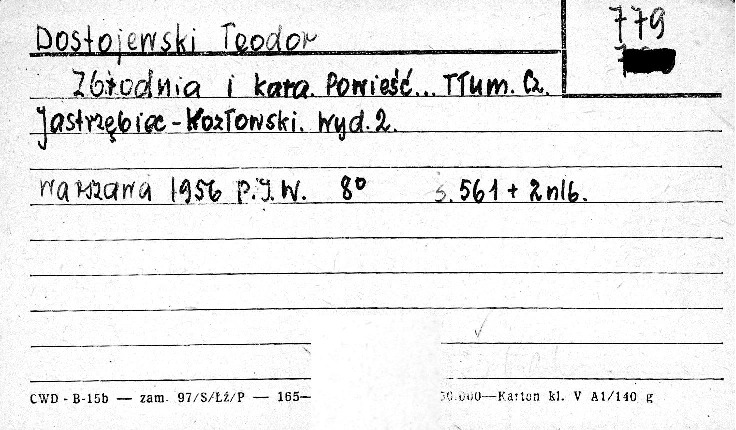 779
Dostojewski Teodor
Zbrodnia i kara. Powieść... Tłum. Cz.
Jastrzębiec-Kozłowski. Wyd. 2.
Warszawa 1956 P.I.W. 8º s. 561 + 2 nlb.
CWD - B-15b — zam. 97/S/Łź/P — 165— 50.000—Karton kl. V A1/140 g